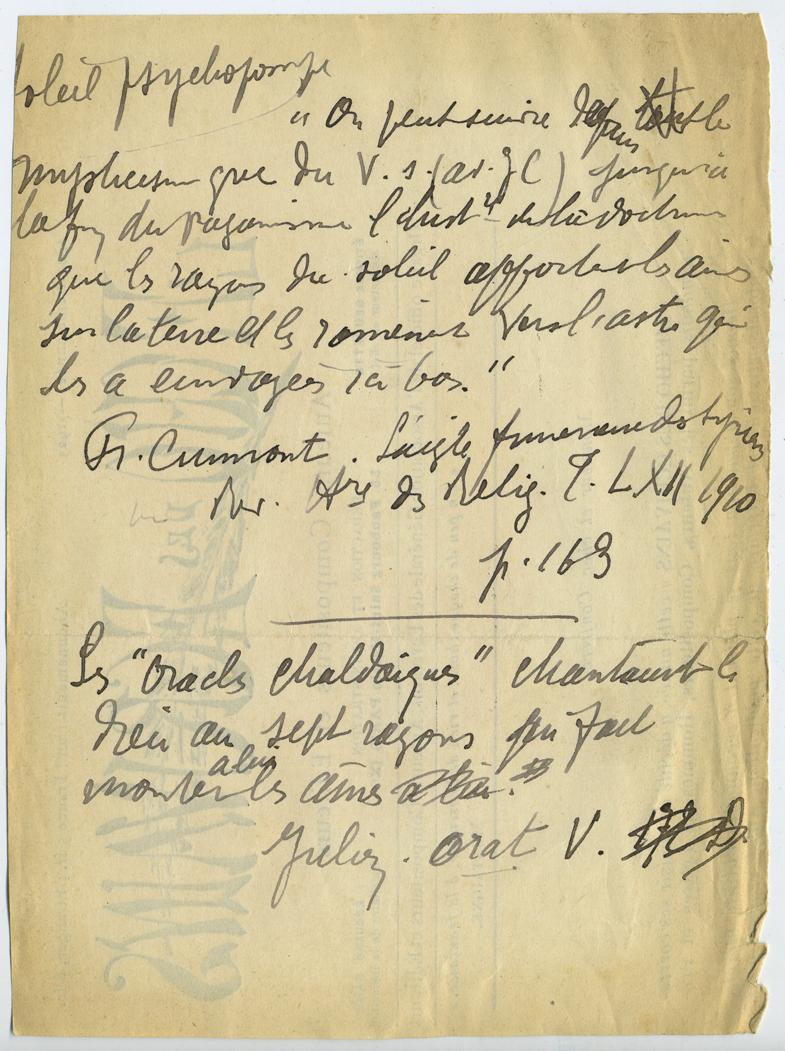 Soleil psychopompe
"On peut suivre depuis le
mysticisme grec du V. s. (av. J C) jusqu'à
la fin du paganisme l'hist. de la doctrine
que les rayons du soleil apportent les âmes
sur la terre et les ramènent vers l'astre qui
les a envoyées ici bas."
Fr. Cumont. L'aigle funéraire des Syriens
Rev. Hre des Relig. T. LXII 1910
p. 163
Les "Oracles chaldaïques" chantaient le
dieu au sept rayons qui fait
monter à lui les âmes
Julien. Orat V.